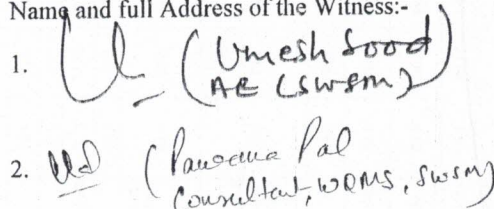 Name and full Address of the Witness:-
1. (Umesh Sood)
AE (SWSM)
2. (Pal
Consultant, WQMS, SWSM)